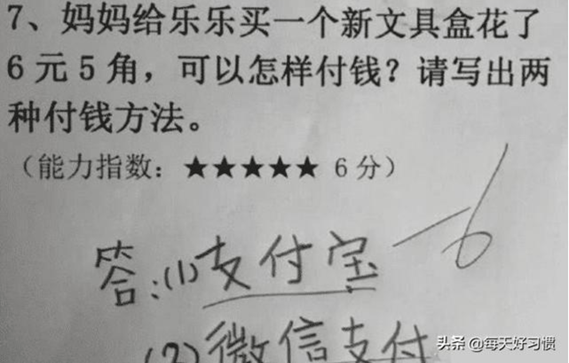 7、妈妈给乐乐买一个新文具盒花了
6元5角，可以怎样付钱？请写出两
种付钱方法。
（能力指数：★★★★★ 6分）
答:(1)支付宝 -6
(2)微信支付
头条 @每天好习惯